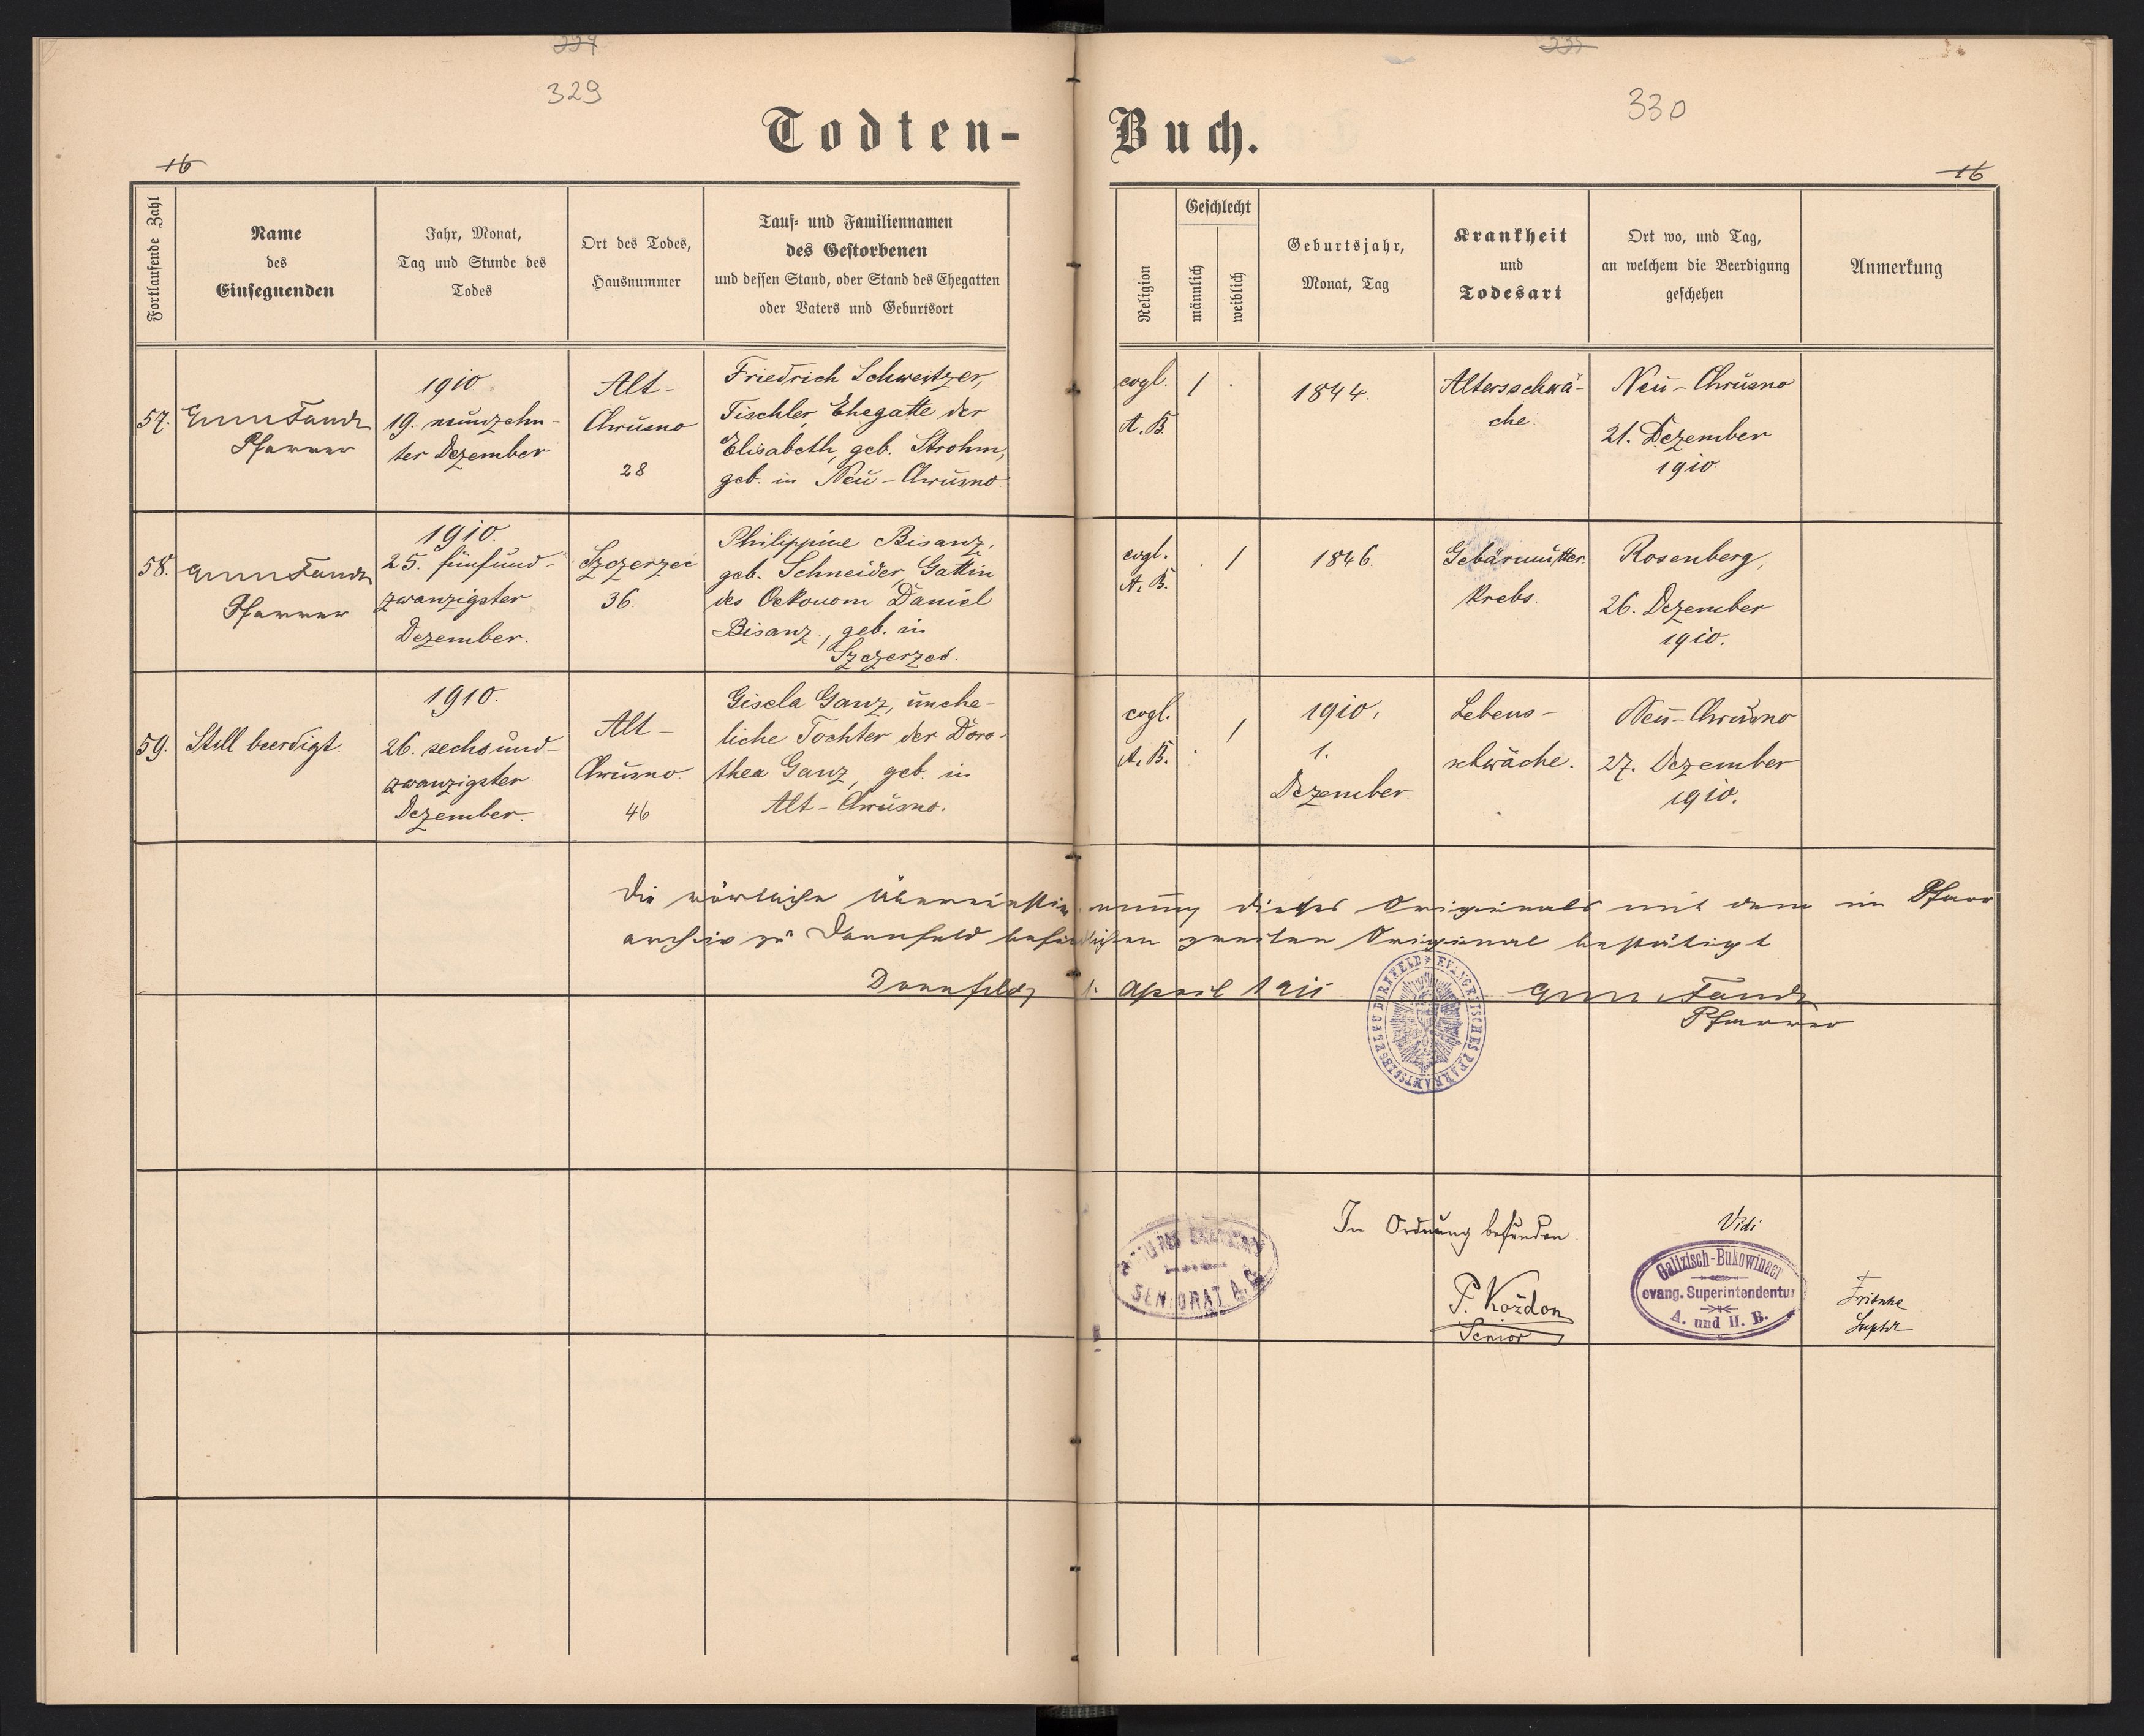 329
330
Todten-Buch.
16
16
Fortlaufende Zahl
Name
des
Einsegnenden
Jahr, Monat,
Tag und Stunde des
Todes
Ort des Todes,
Hausnummer
Tauf- und Familiennamen
des Gestorbenen
und dessen Stand, oder Stand des Ehegatten
oder Vaters und Geburtsort
Religion
Geschlecht
männlich
weiblich
Geburtsjahr,
Monat, Tag
Krankheit
und
Todesart
Ort wo, und Tag,
an welchem die Beerdigung
geschehen
Anmerkung
57.
Pfarrer
1910.
19. neunzehn-
ter Dezember
Alt-
Chrusno
28
Friedrich Schweitzer,
Tischler, Ehegatte der
Elisabeth, geb. Strohm,
geb. in Neu-Chrusno.
evgl.
A. B.
/ .
1844.
Altersschwä-
che.
Neu-Chrusno
21. Dezember
1910.
58.
Pfarrer
1910.
25. fünfund-
zwanzigster
Dezember.
Szczerzec
36.
Philippine Bisanz,
geb. Schneider, Gattin
des Oekonom Daniel
Bisanz, geb. in
Szczerzec.
evgl.
A. B.
. /
1846.
Gebärmutter-
krebs.
Rosenberg,
26. Dezember
1910.
59.
Still beerdigt.
1910.
26. sechsund-
zwanzigster
Dezember.
Alt-
Chrusno.
46
Gisela Ganz, unehe-
liche Tochter der Doro-
thea Ganz, geb. in
Alt-Chrusno.
evgl.
A. B.
. /
1910.
1.
Dezember.
Lebens-
schwäche.
Neu-Chrusno
27. Dezember
1910.
Die wörtliche Übereinstimmung dieses Originals mit dem im Pfarr
archiv zu Dornfeld befindlichen zweiten Original bestätigt
Dornfeld, 1. April 1911
Pfarrer
EVANGELISCHES PFARRAMTSSIEGEL ZU DORNFELD
In Ordnung befunden.
P. Koždon
Senior
SENIORAT A. B.
Vidi
Galizisch-Bukowinaer
evang. Superintendentur
A. und H. B.
Fritsche
Suptdt